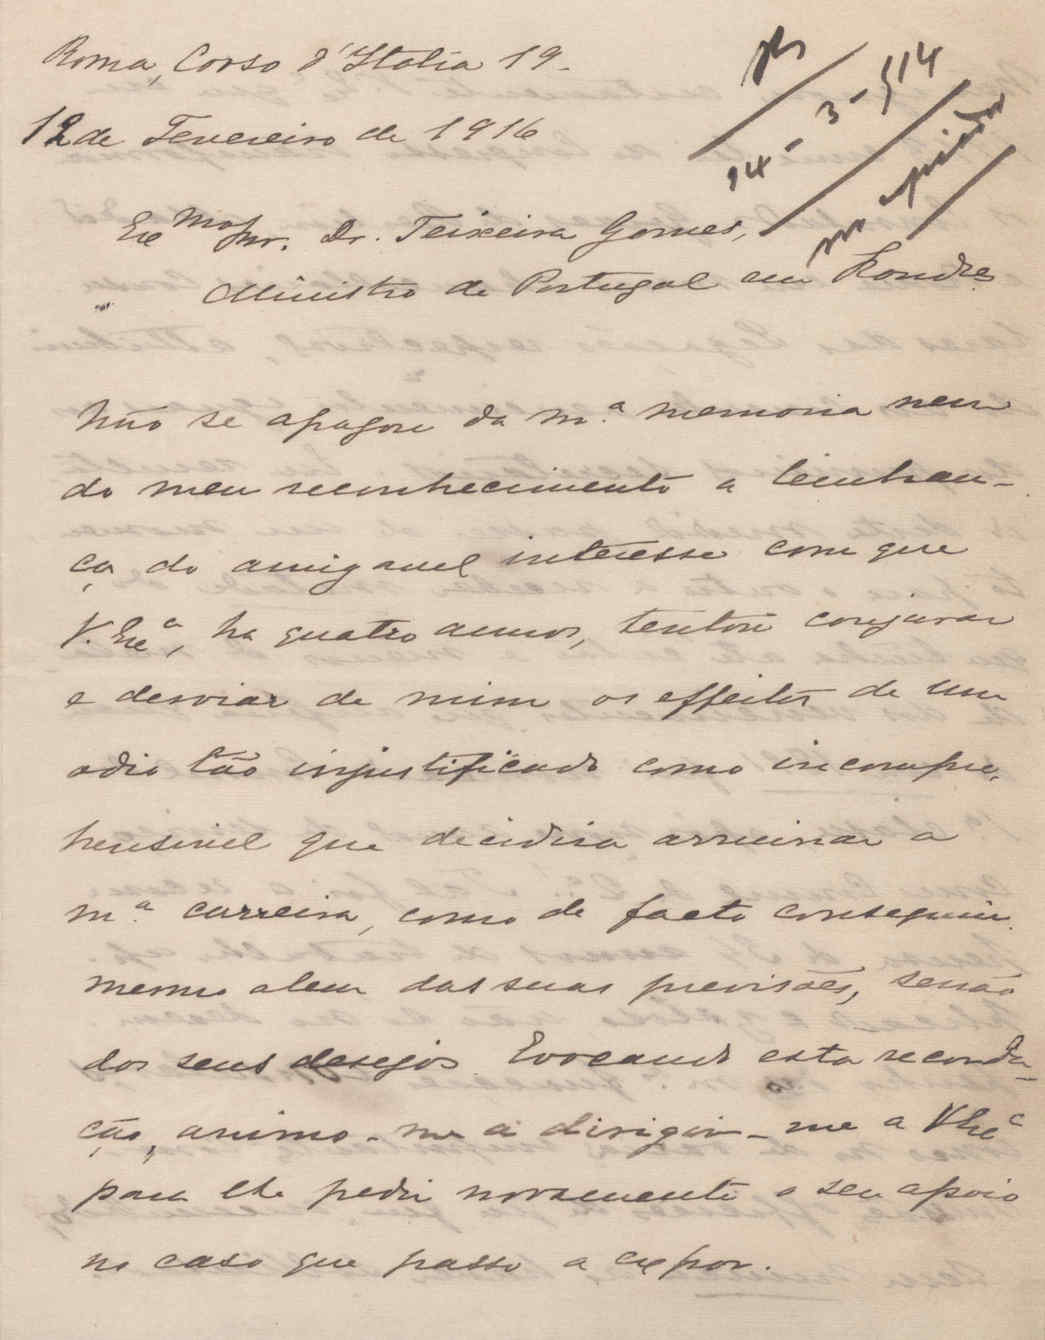 Roma, Corso d'Italia 19.
12 de Fevereiro de 1916
14-3-914
Exmo Snr. Dr. Teixeira Gomes,
Ministro de Portugal em Londres
Não se apagou da m.a memoria nem
do meu reconhecimento a lembran-
ça do amigavel interesse com que
V. Exa, ha quatro annos, tentou conjurar
e desviar de mim os effeitos de um
odio tão injustificado como incompre-
hensivel que decidira arruinar a
m.a carreira, como de facto conseguiu
mesmo alem das suas previsões, senão
dos seus desejos. Evocando esta recorda-
ção, animo-me a dirigir-me a V Exa
para lhe pedir novamente o seu apoio
no caso que passo a expor.